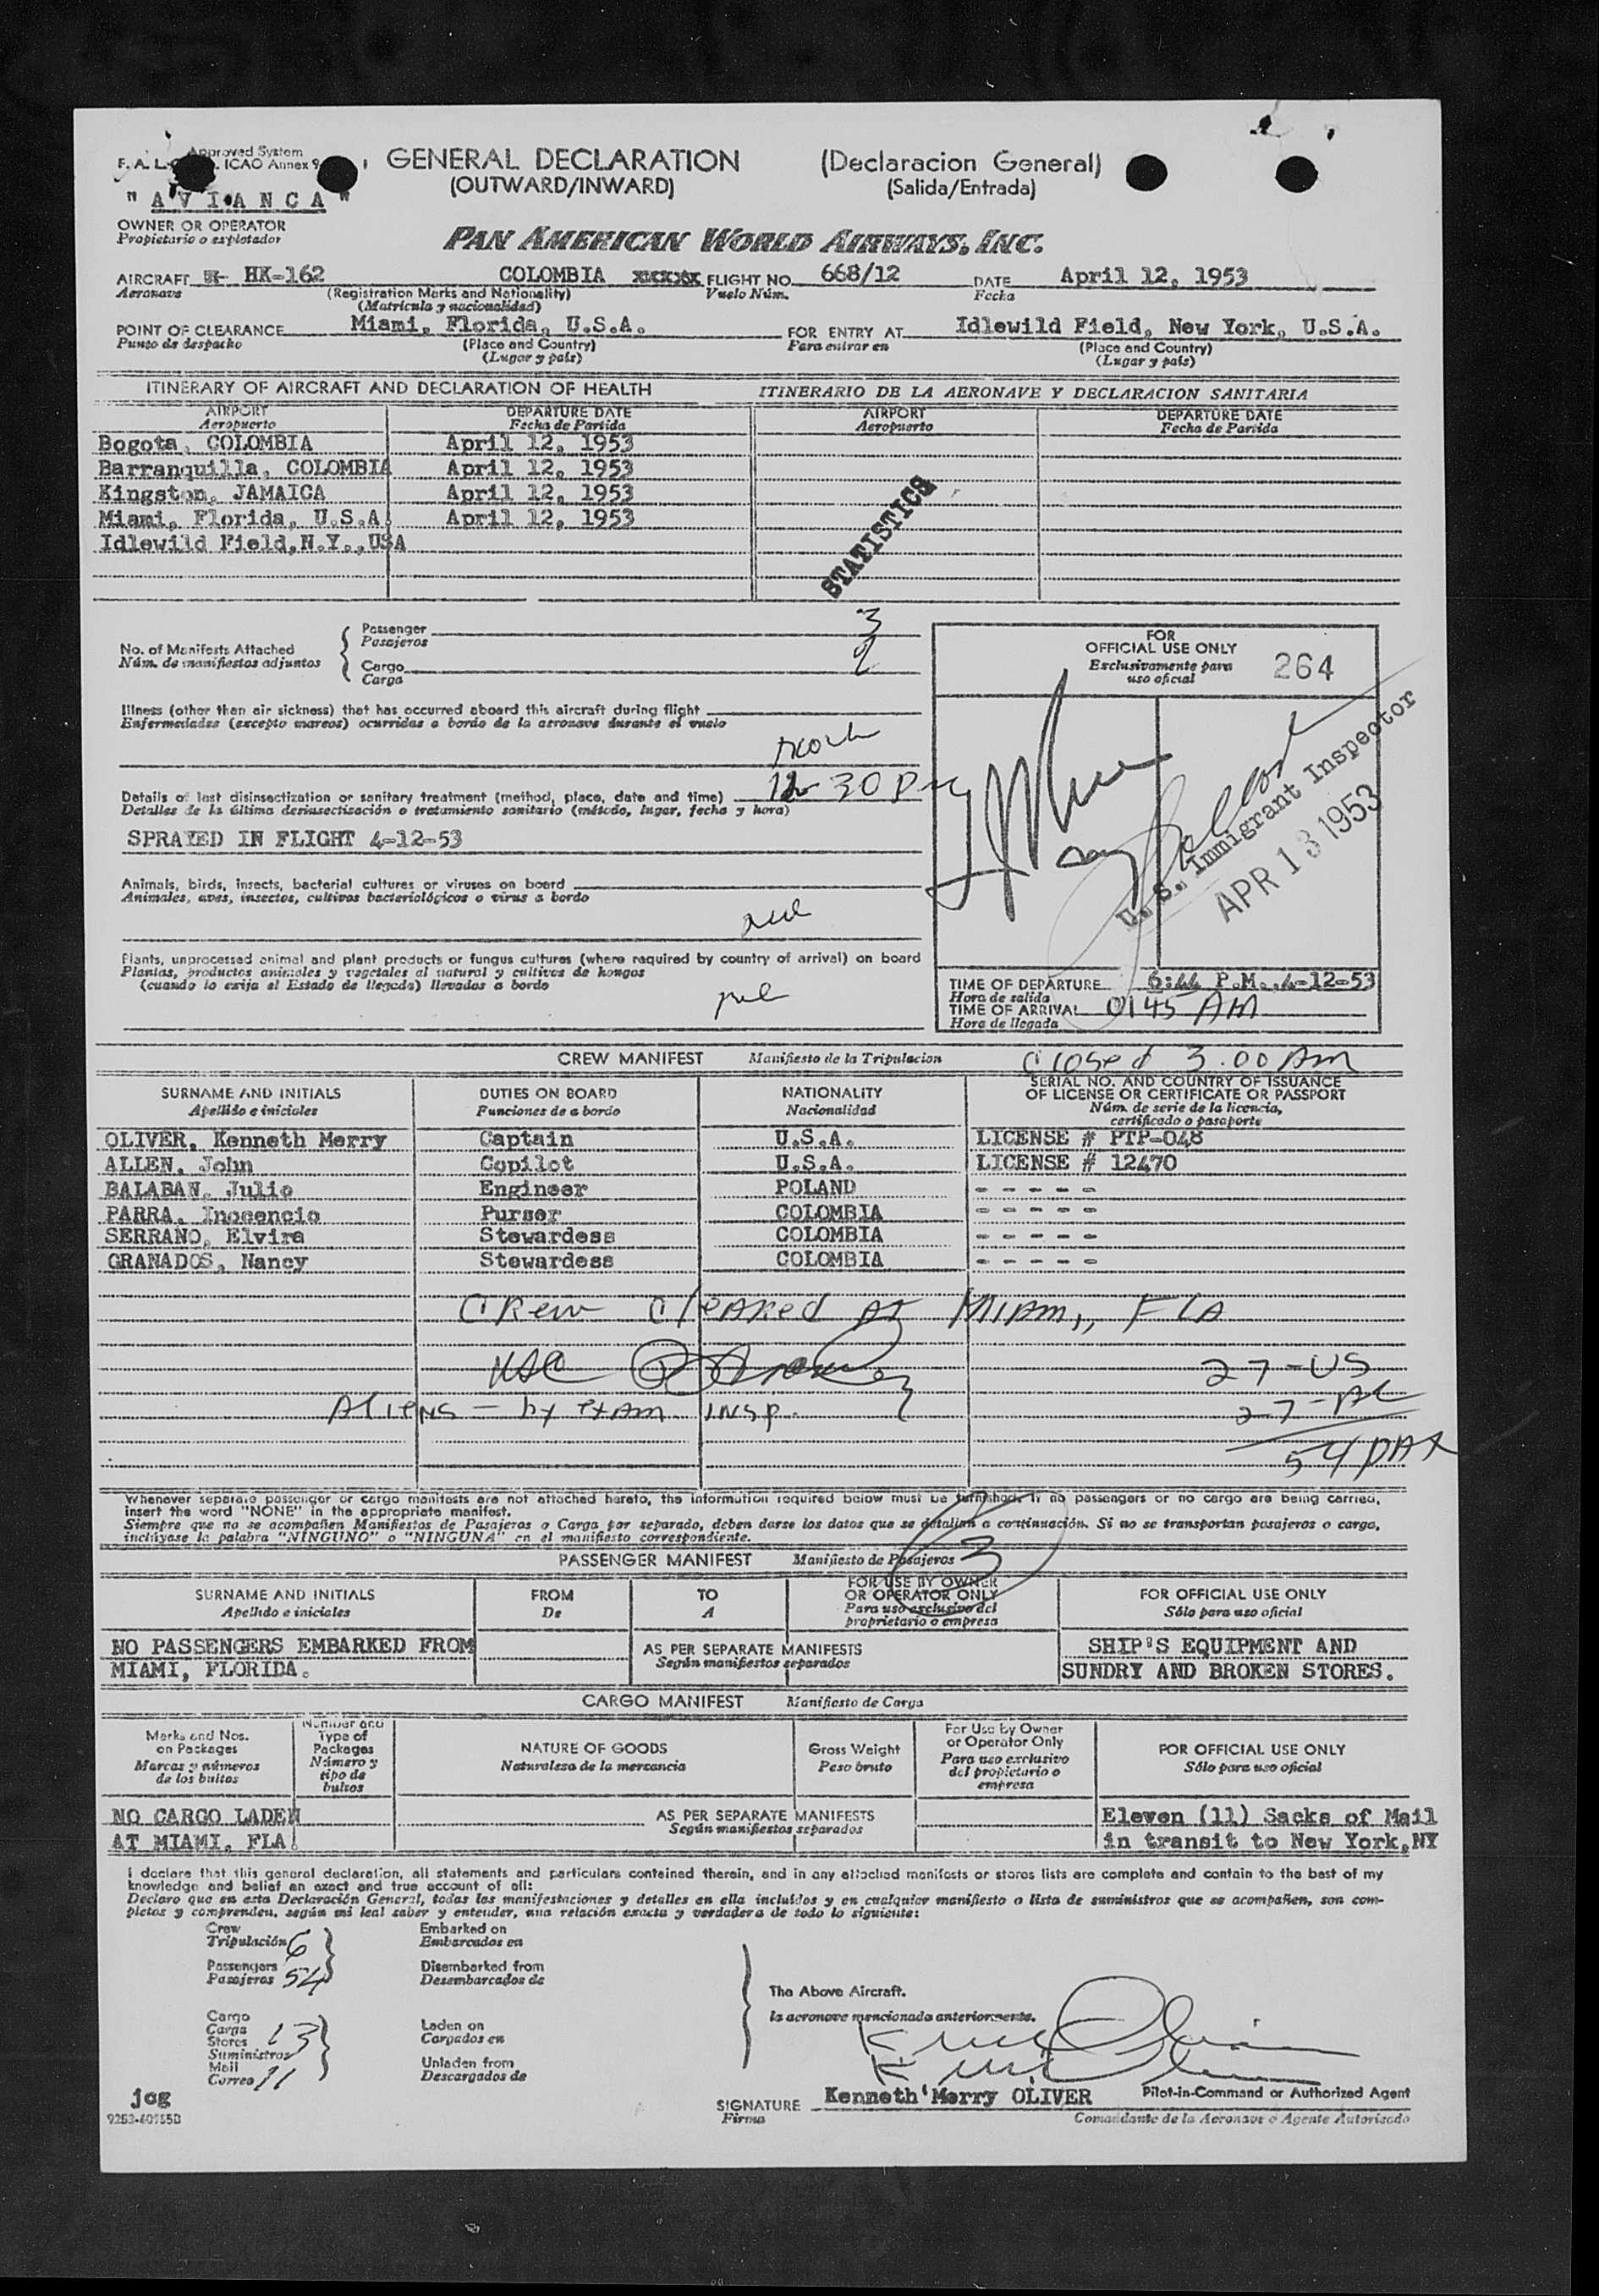 Approved System
F. A. L. ICAO Annex 9
GENERAL DECLARATION (Declaracion General)
(OUTWARD/INWARD) (Salida/Entrada)
" A V I A N C A "
OWNER OR OPERATOR
Propietario o explotador
PAN AMERICAN WORLD AIRWAYS, INC.
AIRCRAFT HK-162 COLOMBIA xxxxx FLIGHT NO. 668/12 DATE April 12, 1953
Aeronave (Registration Marks and Nationality) Vuelo Núm. Fecha
(Matricula y nacionalidad)
POINT OF CLEARANCE Miami, Florida, U.S.A. FOR ENTRY AT Idlewild Field, New York, U.S.A.
Punto de despacho (Place and Country) Para entrar en (Place and Country)
(Lugar y país) (Lugar y país)
ITINERARY OF AIRCRAFT AND DECLARATION OF HEALTH ITINERARIO DE LA AERONAVE Y DECLARACION SANITARIA
AIRPORT DEPARTURE DATE AIRPORT DEPARTURE DATE
Aeropuerto Fecha de Partida Aeropuerto Fecha de Partida
Bogota, COLOMBIA April 12, 1953
Barranquilla, COLOMBIA April 12, 1953
Kingston, JAMAICA April 12, 1953
Miami, Florida, U.S.A. April 12, 1953
Idlewild Field,N.Y.,USA
STATISTICS
No. of Manifests Attached
Núm. de manifiestos adjuntos
Passenger 3
Pasajeros
Cargo 2
Carga
FOR
OFFICIAL USE ONLY
Exclusivamente para
uso oficial
264
Illness (other than air sickness) that has occurred aboard this aircraft during flight
Enfermedades (excepto mareos) ocurridas a bordo de la aeronave durante el vuelo
Details of last disinsectization or sanitary treatment (method, place, date and time) 12-30 PM
Detalles de la última desinsectización o tratamiento sanitario (método, lugar, fecha y hora)
SPRAYED IN FLIGHT 4-12-53
U. S. Immigrant Inspector
APR 13 1953
Animals, birds, insects, bacterial cultures or viruses on board
Animales, aves, insectos, cultivos bacteriológicos o virus a bordo
nil
Plants, unprocessed animal and plant products or fungus cultures (where required by country of arrival) on board
Plantas, productos animales y vegetales al natural y cultivos de hongos
(cuando lo exija el Estado de llegada) llevados a bordo
nil
TIME OF DEPARTURE 6:44 P.M.,4-12-53
Hora de salida
TIME OF ARRIVAL 0145 AM
Hora de llegada
CREW MANIFEST Manifiesto de la Tripulacion Closed 3.00 AM
SURNAME AND INITIALS DUTIES ON BOARD NATIONALITY SERIAL NO. AND COUNTRY OF ISSUANCE
OF LICENSE OR CERTIFICATE OR PASSPORT
Apellido e iniciales Funciones de a bordo Nacionalidad Núm. de serie de la licencia,
certificado o pasaporte
OLIVER, Kenneth Merry Captain U.S.A. LICENSE # PTP-048
ALLEN, John Copilot U.S.A. LICENSE # 12470
BALABAN, Julio Engineer POLAND - - - - -
PARRA, Inocencio Purser COLOMBIA - - - - -
SERRANO, Elvira Stewardess COLOMBIA - - - - -
GRANADOS, Nancy Stewardess COLOMBIA - - - - -
Crew Cleared At Miami, FLA
27-US
Aliens - by exam insp. 27-AL
54 PAX
Whenever separate passenger or cargo manifests are not attached hereto, the information required below must be furnished. If no passengers or no cargo are being carried,
insert the word "NONE" in the appropriate manifest.
Siempre que no se acompañen Manifiestos de Pasajeros o Carga por separado, deben darse los datos que se detallan a continuación. Si no se transportan pasajeros o carga,
inclúyase la palabra "NINGUNO" o "NINGUNA" en el manifiesto correspondiente.
PASSENGER MANIFEST Manifiesto de Pasajeros 3
SURNAME AND INITIALS FROM TO FOR USE BY OWNER
OR OPERATOR ONLY FOR OFFICIAL USE ONLY
Apellido e iniciales De A Para uso exclusivo del
propietario o empresa Sólo para uso oficial
NO PASSENGERS EMBARKED FROM AS PER SEPARATE MANIFESTS SHIP'S EQUIPMENT AND
MIAMI, FLORIDA. Según manifiestos separados SUNDRY AND BROKEN STORES.
CARGO MANIFEST Manifiesto de Carga
Marks and Nos.
on Packages
Marcas y números
de los bultos
Number and
Type of
Packages
Número y
tipo de
bultos
NATURE OF GOODS
Naturaleza de la mercancia
Gross Weight
Peso bruto
For Use by Owner
or Operator Only
Para uso exclusivo
del propietario o
empresa
FOR OFFICIAL USE ONLY
Sólo para uso oficial
NO CARGO LADEN AS PER SEPARATE MANIFESTS Eleven (11) Sacks of Mail
AT MIAMI, FLA. Según manifiestos separados in transit to New York,NY
I declare that this general declaration, all statements and particulars contained therein, and in any attached manifests or stores lists are complete and contain to the best of my
knowledge and belief an exact and true account of all:
Declaro que en esta Declaración General, todas las manifestaciones y detalles en ella incluidos y en cualquier manifiesto o lista de suministros que se acompañen, son com-
pletos y comprenden, según mi leal saber y entender, una relación exacta y verdadera de todo lo siguiente:
Crew Embarked on
Tripulación 6 Embarcados en
Passengers Disembarked from
Pasajeros 54 Desembarcados de
The Above Aircraft.
la aeronave mencionada anteriormente.
Cargo
Carga
Stores
Suministros 13
Laden on
Cargados en
Mail
Correo 11
Unladen from
Descargados de
jog
SIGNATURE Kenneth Merry OLIVER Pilot-in-Command or Authorized Agent
Firma Comandante de la Aeronave o Agente Autorizado